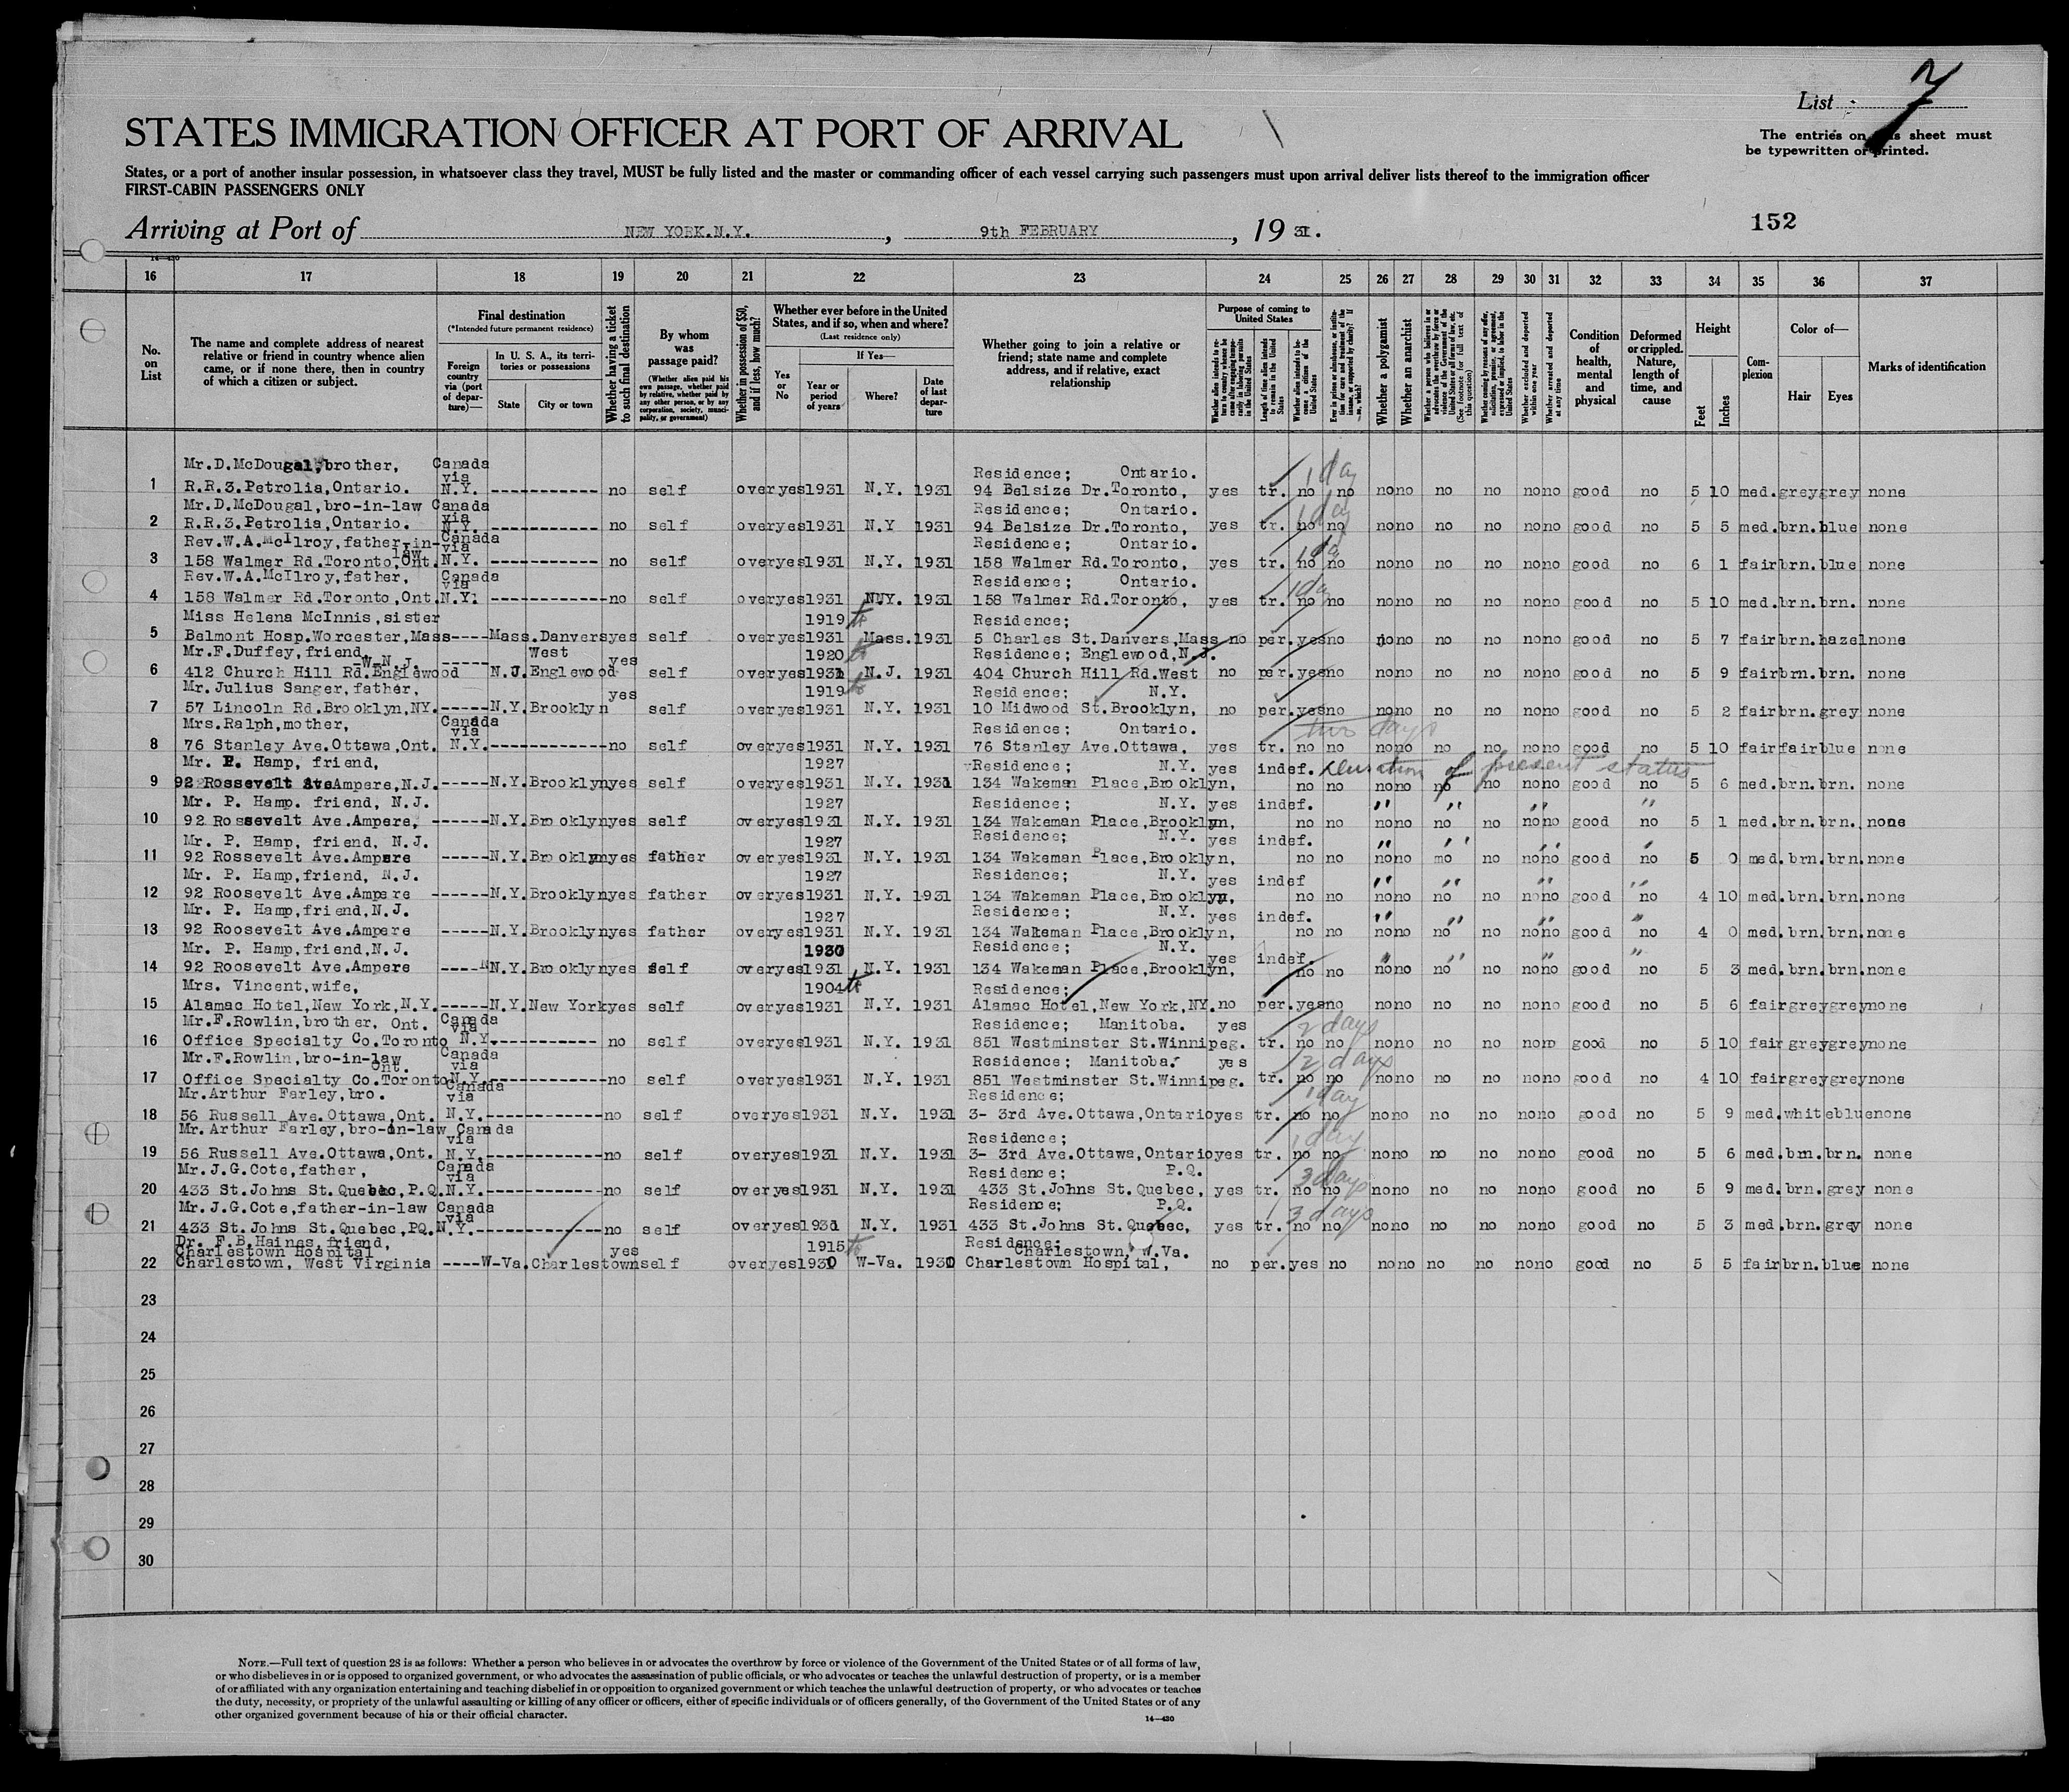 List 7
STATES IMMIGRATION OFFICER AT PORT OF ARRIVAL
The entries on this sheet must
be typewritten or printed.
States, or a port of another insular possession, in whatsoever class they travel, MUST be fully listed and the master or commanding officer of each vessel carrying such passengers must upon arrival deliver lists thereof to the immigration officer
FIRST-CABIN PASSENGERS ONLY
Arriving at Port of NEW YORK.N.Y., 9th FEBRUARY, 1931.
152
14—430
16 17 18 19 20 21 22 23 24 25 26 27 28 29 30 31 32 33 34 35 36 37
No. on List
The name and complete address of nearest relative or friend in country whence alien came, or if none there, then in country of which a citizen or subject.
Final destination
(*Intended future permanent residence)
Foreign country via (port of departure)—
In U. S. A., its territories or possessions
State
City or town
Whether having a ticket to such final destination
By whom was passage paid?
(Whether alien paid his own passage, whether paid by relative, whether paid by any other person, or by any corporation, society, municipality, or government)
Whether in possession of $50, and if less, how much?
Whether ever before in the United States, and if so, when and where?
(Last residence only)
Yes or No
If Yes—
Year or period of years
Where?
Date of last departure
Whether going to join a relative or friend; state name and complete address, and if relative, exact relationship
Purpose of coming to United States
Whether alien intends to return to country whence he came after engaging temporarily in laboring pursuits in the United States
Length of time alien intends to remain in the United States
Whether alien intends to become a citizen of the United States
Ever in prison or almshouse, or institution for care and treatment of the insane, or supported by charity? If so, which?
Whether a polygamist
Whether an anarchist
Whether a person who believes in or advocates the overthrow by force or violence of the Government of the United States or all forms of law, etc. (See footnote for full text of this question)
Whether coming by reason of any offer, solicitation, promise, or agreement, expressed or implied, to labor in the United States
Whether excluded and deported within one year
Whether arrested and deported at any time
Condition of health, mental and physical
Deformed or crippled. Nature, length of time, and cause
Height
Feet
Inches
Complexion
Color of—
Hair
Eyes
Marks of identification
Mr.D.McDougal,brother, Canada via Residence; Ontario. 1 day
1 R.R.3.Petrolia,Ontario. N.Y. ------------ no self over yes 1931 N.Y. 1931 94 Belsize Dr.Toronto, yes tr. no no no no no no no no good no 5 10 med. grey grey none
Mr.D.McDougal,bro-in-law Canada via Residence; Ontario. 1 day
2 R.R.3.Petrolia,Ontario. N.Y. ------------ no self over yes 1931 N.Y 1931 94 Belsize Dr.Toronto, yes tr. no no no no no no no no good no 5 5 med. brn. blue none
Rev.W.A.McIlroy,father-in-law Canada via Residence; Ontario. 1 da
3 158 Walmer Rd.Toronto,Ont. N.Y. ------------ no self over yes 1931 N.Y. 1931 158 Walmer Rd.Toronto, yes tr. no no no no no no no no good no 6 1 fair brn. blue none
Rev.W.A.McIlroy,father, Canada via Residence; Ontario. 1 da
4 158 Walmer Rd.Toronto,Ont. N.Y. ------------ no self over yes 1931 N.Y. 1931 158 Walmer Rd.Toronto, yes tr. no no no no no no no no good no 5 10 med. brn. brn. none
Miss Helena McInnis,sister 1919 to Residence;
5 Belmont Hosp.Worcester,Mass ---- Mass. Danvers yes self over yes 1931 Mass. 1931 5 Charles St.Danvers,Mass no per. yes no no no no no no no good no 5 7 fair brn. hazel none
Mr.F.Duffey,friend, W-N.J. West yes 1920 to Residence; Englewood,N.J.
6 412 Church Hill Rd.Englewood ----- N.J. Englewood self over yes 1931 N.J. 1931 404 Church Hill Rd.West no per. yes no no no no no no no good no 5 9 fair brn. brn. none
Mr.Julius Sanger,father, yes 1919 to Residence; N.Y.
7 57 Lincoln Rd.Brooklyn,NY. ----- N.Y. Brooklyn self over yes 1931 N.Y. 1931 10 Midwood St.Brooklyn, no per. yes no no no no no no no good no 5 2 fair brn. grey none
Mrs.Ralph,mother, Canada via Residence; Ontario. two days
8 76 Stanley Ave.Ottawa,Ont. N.Y. ------------ no self over yes 1931 N.Y. 1931 76 Stanley Ave.Ottawa, yes tr. no no no no no no no no good no 5 10 fair fair blue none
Mr. P. Hamp, friend, 1927 Residence; N.Y. yes indef. duration of present status
9 92 Rossevelt Ave Ampere,N.J. ----- N.Y. Brooklyn yes self over yes 1931 N.Y. 1931 134 Wakeman Place,Brooklyn, no no no no no no no no good no 5 6 med. brn. brn. none
Mr. P. Hamp. friend, N.J. 1927 Residence; N.Y. yes indef. " " " "
10 92 Rossevelt Ave.Ampere, ----- N.Y. Brooklyn yes self over yes 1931 N.Y. 1931 134 Wakeman Place,Brooklyn, no no no no no no no no good no 5 1 med. brn. brn. none
Mr. P. Hamp, friend, N.J. 1927 Residence; N.Y. yes indef. " " " "
11 92 Rossevelt Ave.Ampere ----- N.Y. Brooklyn yes father over yes 1931 N.Y. 1931 134 Wakeman Place,Brooklyn, no no no no mo no no no good no 5 0 med. brn. brn. none
Mr. P. Hamp,friend, N.J. 1927 Residence; N.Y. yes indef " " " "
12 92 Roosevelt Ave.Ampere ------ N.Y. Brooklyn yes father over yes 1931 N.Y. 1931 134 Wakeman Place,Brooklyn, no no no no no no no no good no 4 10 med. brn. brn. none
Mr. P. Hamp,friend,N.J. 1927 Residence; N.Y. yes indef. " " " "
13 92 Roosevelt Ave.Ampere ----- N.Y. Brooklyn yes father over yes 1931 N.Y. 1931 134 Wakeman Place,Brooklyn, no no no no no no no no good no 4 0 med. brn. brn. none
Mr. P. Hamp,friend,N.J. 1930 Residence; N.Y. yes indef. " " " "
14 92 Roosevelt Ave.Ampere ----- N.Y. Brooklyn yes self over yes 1931 N.Y. 1931 134 Wakeman Place,Brooklyn, no no no no no no no no good no 5 3 med. brn. brn. none
Mrs. Vincent,wife, 1904 to Residence;
15 Alamac Hotel,New York,N.Y. ----- N.Y. New York yes self over yes 1931 N.Y. 1931 Alamac Hotel,New York,NY. no per. yes no no no no no no no good no 5 6 fair grey grey none
Mr.F.Rowlin,brother, Ont. Canada via Residence; Manitoba. yes 2 days
16 Office Specialty Co.Toronto N.Y. ------------ no self over yes 1931 N.Y. 1931 851 Westminster St.Winnipeg. tr. no no no no no no no no good no 5 10 fair grey grey none
Mr.F.Rowlin,bro-in-law Ont. Canada via Residence; Manitoba. yes 2 days
17 Office Specialty Co.Toronto N.Y. ------------ no self over yes 1931 N.Y. 1931 851 Westminster St.Winnipeg. tr. no no no no no no no no good no 4 10 fair grey grey none
Mr.Arthur Farley,bro. Canada via Residence; 1 day
18 56 Russell Ave.Ottawa,Ont. N.Y. ------------ no self over yes 1931 N.Y. 1931 3- 3rd Ave.Ottawa,Ontario yes tr. no no no no no no no no good no 5 9 med. white blue none
Mr.Arthur Farley,bro-in-law Canada via Residence; 1 day
19 56 Russell Ave.Ottawa,Ont. N.Y. ------------ no self over yes 1931 N.Y. 1931 3- 3rd Ave.Ottawa,Ontario yes tr. no no no no no no no no good no 5 6 med. brn. brn. none
Mr.J.G.Cote,father, Canada via Residence; P.Q. 3 days
20 433 St.Johns St.Quebec,P.Q. N.Y. ------------ no self over yes 1931 N.Y. 1931 433 St.Johns St.Quebec, yes tr. no no no no no no no no good no 5 9 med. brn. grey none
Mr.J.G.Cote,father-in-law Canada via Residence; P.Q. 3 days
21 433 St.Johns St.Quebec,PQ. N.Y. ------------ no self over yes 1931 N.Y. 1931 433 St.Johns St.Quebec, yes tr. no no no no no no no no good no 5 3 med. brn. grey none
Dr. F.B.Haines,friend, 1915 to Residence;
Charlestown Hospital yes Charlestown, W.Va.
22 Charlestown, West Virginia ---- W-Va. Charlestown self over yes 1930 W-Va. 1930 Charlestown Hospital, no per. yes no no no no no no no good no 5 5 fair brn. blue none
23
24
25
26
27
28
29
30
NOTE.—Full text of question 28 is as follows: Whether a person who believes in or advocates the overthrow by force or violence of the Government of the United States or of all forms of law,
or who disbelieves in or is opposed to organized government, or who advocates the assassination of public officials, or who advocates or teaches the unlawful destruction of property, or is a member
of or affiliated with any organization entertaining and teaching disbelief in or opposition to organized government or which teaches the unlawful destruction of property, or who advocates or teaches
the duty, necessity, or propriety of the unlawful assaulting or killing of any officer or officers, either of specific individuals or of officers generally, of the Government of the United States or of any
other organized government because of his or their official character.
14—430